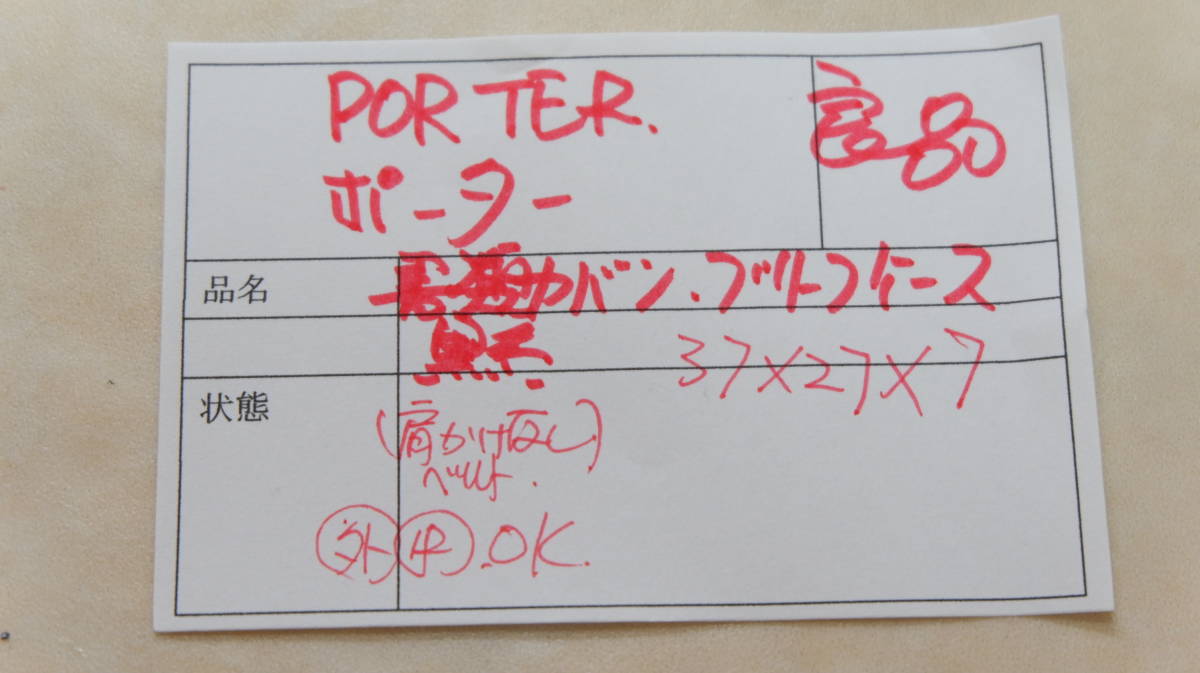 PORTER.
良品
ポーター
品名 カバン.ブリーフケース
黒. 37×27×7
状態
(肩かけなし)
ベルト.
外 中.OK.